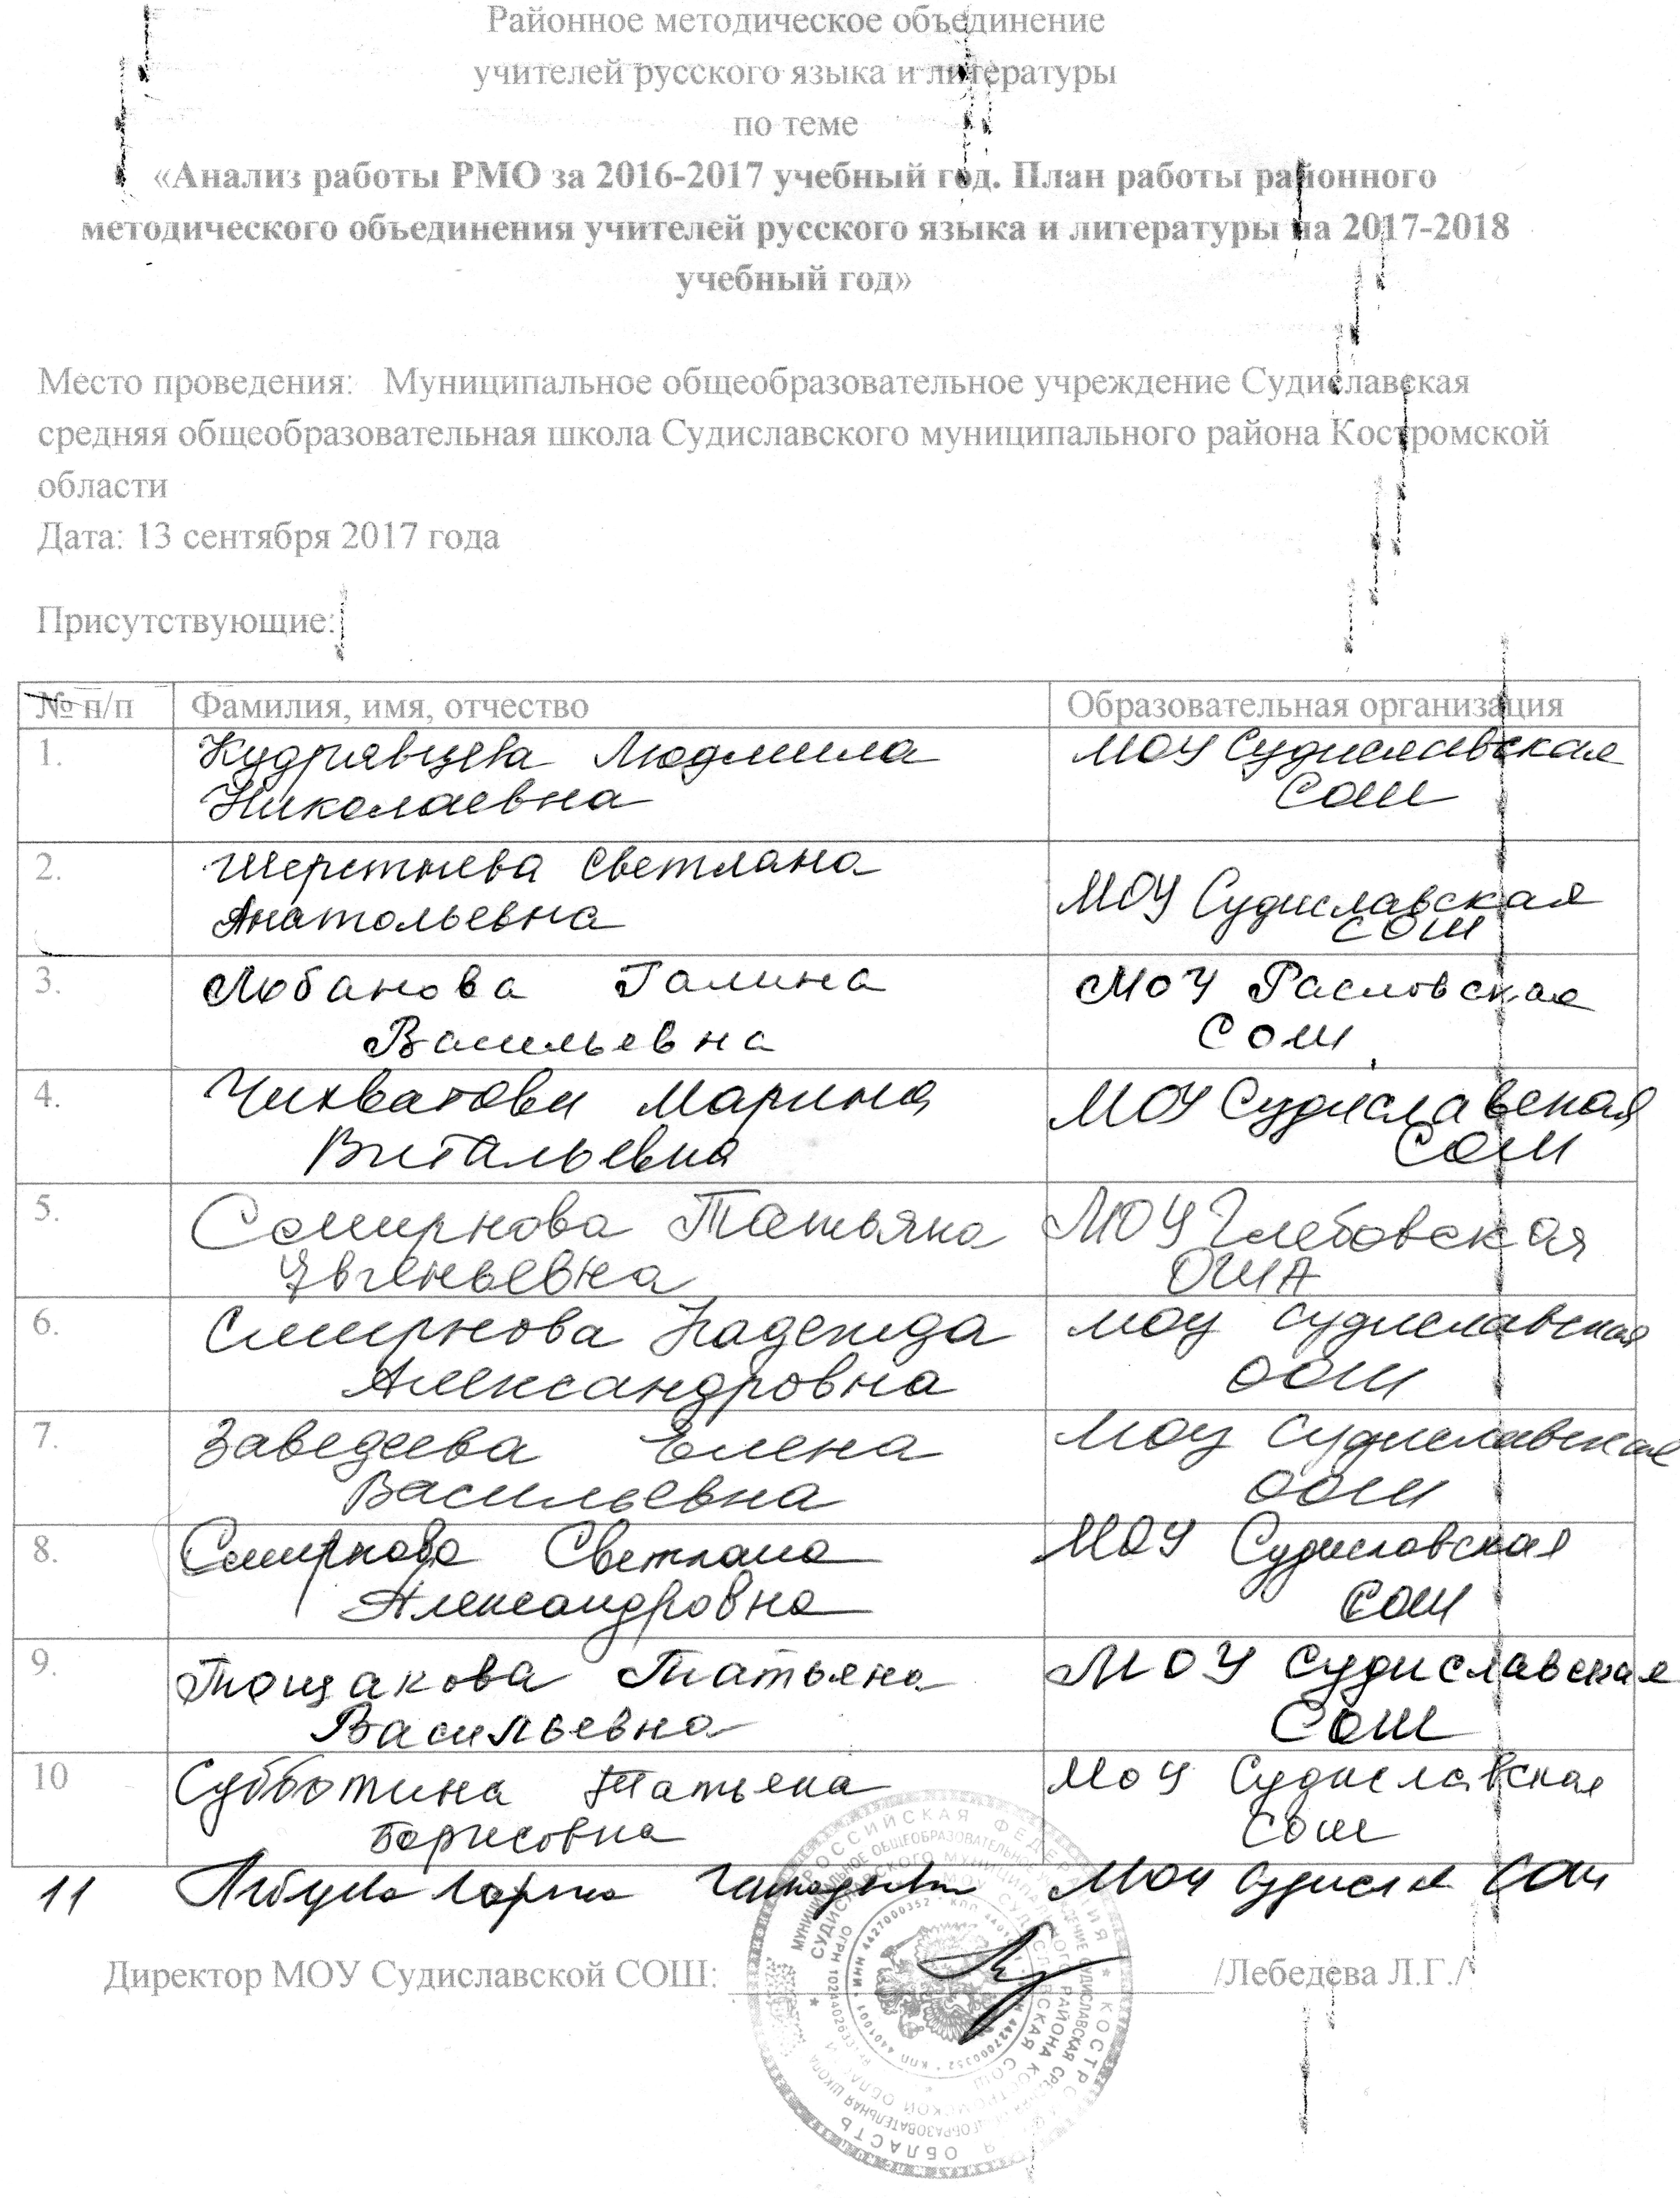 Районное методическое объединение
учителей русского языка и литературы
по теме
«Анализ работы РМО за 2016-2017 учебный год. План работы районного
методического объединения учителей русского языка и литературы на 2017-2018
учебный год»
Место проведения: Муниципальное общеобразовательное учреждение Судиславская
средняя общеобразовательная школа Судиславского муниципального района Костромской
области
Дата: 13 сентября 2017 года
Присутствующие:
№ п/п Фамилия, имя, отчество Образовательная организация
1. Кудрявцева Людмила МОУ Судиславская
Николаевна СОШ
2. Шерстнева Светлана
Анатольевна МОУ Судиславская
СОШ
3. Лобанова Галина МОУ Расловская
Васильевна СОШ
4. Чихватова Марина МОУ Судиславская
Витальевна СОШ
5. Смирнова Татьяна МОУ Глебовская
Евгеньевна ОША
6. Смирнова Надежда МОУ Судиславская
Александровна ООШ
7. Заведеева Елена МОУ Судиславская
Васильевна ООШ
8. Смирнова Светлана МОУ Судиславская
Александровна СОШ
9. Тощакова Татьяна МОУ Судиславская
Васильевна СОШ
10 Субботина Татьяна МОУ Судиславская
Борисовна СОШ
11 МОУ СОШ
Директор МОУ Судиславской СОШ: /Лебедева Л.Г./
РОССИЙСКАЯ ФЕДЕРАЦИЯ * КОСТРОМСКАЯ ОБЛАСТЬ
ИНН 4427000352 * КПП 440101001